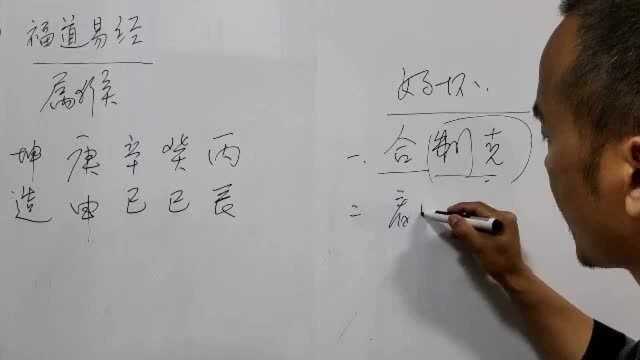 福道易经
属猴
坤 庚 辛 癸 丙
造 申 巳 巳 辰
好坏
一、合(制)克
二